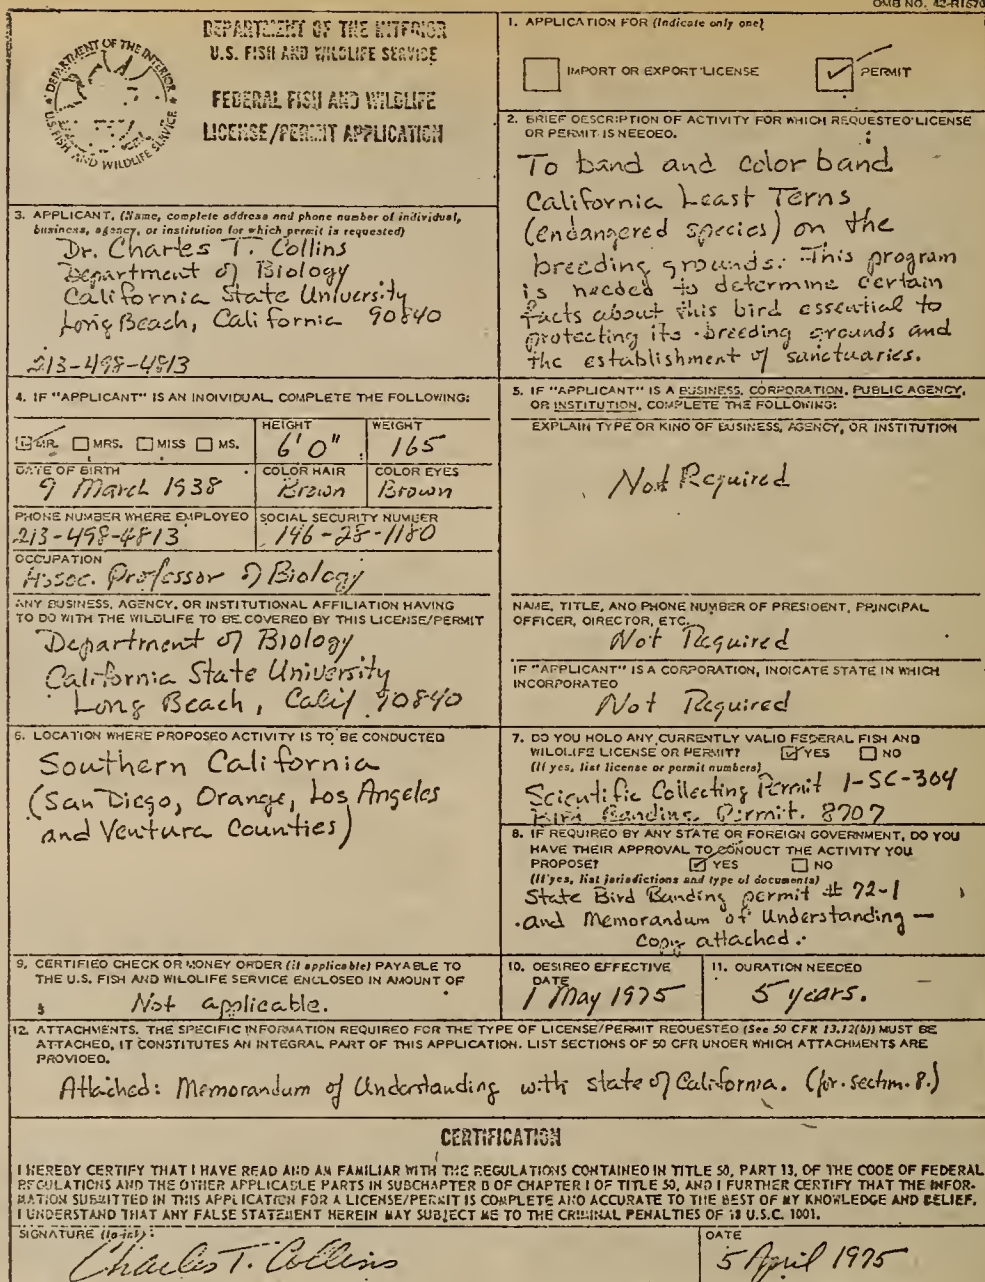 OMB NO. 42-R1670
DEPARTMENT OF THE INTERIOR
U.S. FISH AND WILDLIFE SERVICE
FEDERAL FISH AND WILDLIFE
LICENSE/PERMIT APPLICATION
DEPARTMENT OF THE INTERIOR
U.S. FISH AND WILDLIFE SERVICE
1. APPLICATION FOR (Indicate only one)
IMPORT OR EXPORT LICENSE
PERMIT
2. BRIEF DESCRIPTION OF ACTIVITY FOR WHICH REQUESTED LICENSE
OR PERMIT IS NEEDED.
To band and color band
California Least Terns
(endangered species) on the
breeding grounds. This program
is needed to determine certain
facts about this bird essential to
protecting its breeding grounds and
the establishment of sanctuaries.
3. APPLICANT. (Name, complete address and phone number of individual,
business, agency, or institution for which permit is requested)
Dr. Charles T. Collins
Department of Biology
California State University
Long Beach, California 90840
213-498-4813
4. IF "APPLICANT" IS AN INDIVIDUAL, COMPLETE THE FOLLOWING:
MR. MRS. MISS MS.
HEIGHT
6'0"
WEIGHT
165
DATE OF BIRTH
9 March 1938
COLOR HAIR
Brown
COLOR EYES
Brown
PHONE NUMBER WHERE EMPLOYED
213-498-4813
SOCIAL SECURITY NUMBER
146-28-1180
OCCUPATION
Assoc. Professor of Biology
ANY BUSINESS, AGENCY, OR INSTITUTIONAL AFFILIATION HAVING
TO DO WITH THE WILDLIFE TO BE COVERED BY THIS LICENSE/PERMIT
Department of Biology
California State University
Long Beach, Calif 90840
5. IF "APPLICANT" IS A BUSINESS, CORPORATION, PUBLIC AGENCY,
OR INSTITUTION, COMPLETE THE FOLLOWING:
EXPLAIN TYPE OR KIND OF BUSINESS, AGENCY, OR INSTITUTION
Not Required
NAME, TITLE, AND PHONE NUMBER OF PRESIDENT, PRINCIPAL
OFFICER, DIRECTOR, ETC.
Not Required
IF "APPLICANT" IS A CORPORATION, INDICATE STATE IN WHICH
INCORPORATED
Not Required
6. LOCATION WHERE PROPOSED ACTIVITY IS TO BE CONDUCTED
Southern California
(San Diego, Orange, Los Angeles
and Ventura Counties)
7. DO YOU HOLD ANY CURRENTLY VALID FEDERAL FISH AND
WILDLIFE LICENSE OR PERMIT? YES NO
(If yes, list license or permit numbers)
Scientific Collecting Permit 1-SC-304
Bird Banding Permit. 8707
8. IF REQUIRED BY ANY STATE OR FOREIGN GOVERNMENT, DO YOU
HAVE THEIR APPROVAL TO CONDUCT THE ACTIVITY YOU
PROPOSE? YES NO
(If yes, list jurisdictions and type of documents)
State Bird Banding permit # 72-1
and Memorandum of Understanding —
Copy attached.
9. CERTIFIED CHECK OR MONEY ORDER (if applicable) PAYABLE TO
THE U.S. FISH AND WILDLIFE SERVICE ENCLOSED IN AMOUNT OF
$ Not applicable.
10. DESIRED EFFECTIVE
DATE
1 May 1975
11. DURATION NEEDED
5 years.
12. ATTACHMENTS. THE SPECIFIC INFORMATION REQUIRED FOR THE TYPE OF LICENSE/PERMIT REQUESTED (See 50 CFR 13.12(b)) MUST BE
ATTACHED, IT CONSTITUTES AN INTEGRAL PART OF THIS APPLICATION. LIST SECTIONS OF 50 CFR UNDER WHICH ATTACHMENTS ARE
PROVIDED.
Attached: Memorandum of Understanding with state of California. (for section. 8.)
CERTIFICATION
I HEREBY CERTIFY THAT I HAVE READ AND AM FAMILIAR WITH THE REGULATIONS CONTAINED IN TITLE 50, PART 13, OF THE CODE OF FEDERAL
REGULATIONS AND THE OTHER APPLICABLE PARTS IN SUBCHAPTER B OF CHAPTER I OF TITLE 50, AND I FURTHER CERTIFY THAT THE INFOR-
MATION SUBMITTED IN THIS APPLICATION FOR A LICENSE/PERMIT IS COMPLETE AND ACCURATE TO THE BEST OF MY KNOWLEDGE AND BELIEF.
I UNDERSTAND THAT ANY FALSE STATEMENT HEREIN MAY SUBJECT ME TO THE CRIMINAL PENALTIES OF 18 U.S.C. 1001.
SIGNATURE (In ink):
Charles T. Collins
DATE
5 April 1975